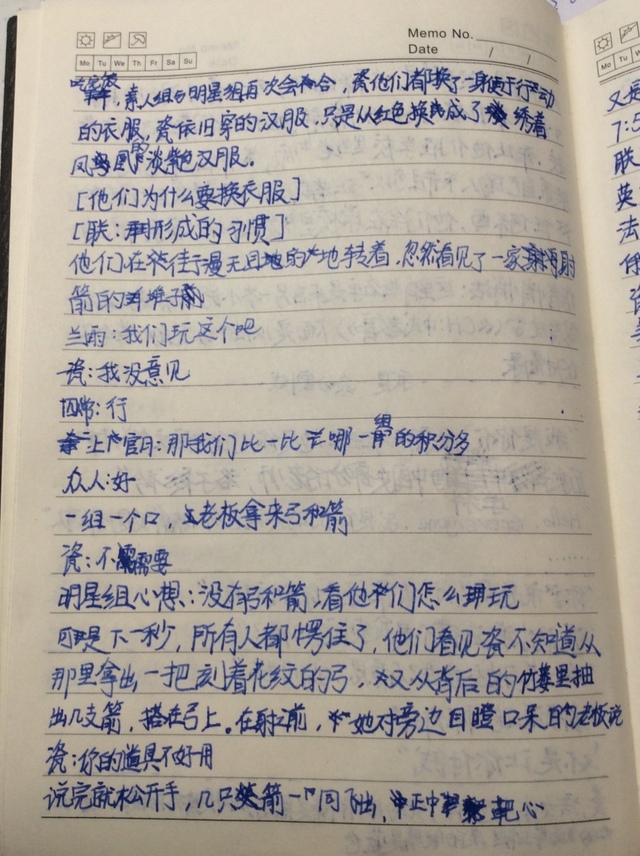 Memo No.
Date / /
Mo Tu We Th Fr Sa Su
吃完饭
素人组与明星组再次会合，瓷他们都换了一身便于行动
的衣服，瓷依旧穿的汉服，只是从红色换成了绣着
凤凰的淡紫色汉服。
[他们为什么要换衣服]
[联：形成的习惯]
他们在街上漫无目的地转着，忽然看见了一家射
箭的摊子
兰雨：我们玩这个吧
瓷：我没意见
四常：行
上官月：那我们比一比哪一组的积分多
众人：好
一组一个口，老板拿来弓和箭
瓷：不需要
明星组心想：没有弓和箭，看他们怎么玩
可是下一秒，所有人都愣住了，他们看见瓷不知道从
那里拿出一把刻着花纹的弓，又从背后的竹篓里抽
出几支箭，搭在弓上。在射之前，她对旁边目瞪口呆的老板说
瓷：你的道具不好用
说完就松开手，几只箭一同飞出，正中靶心
又
7:5
联
英
法